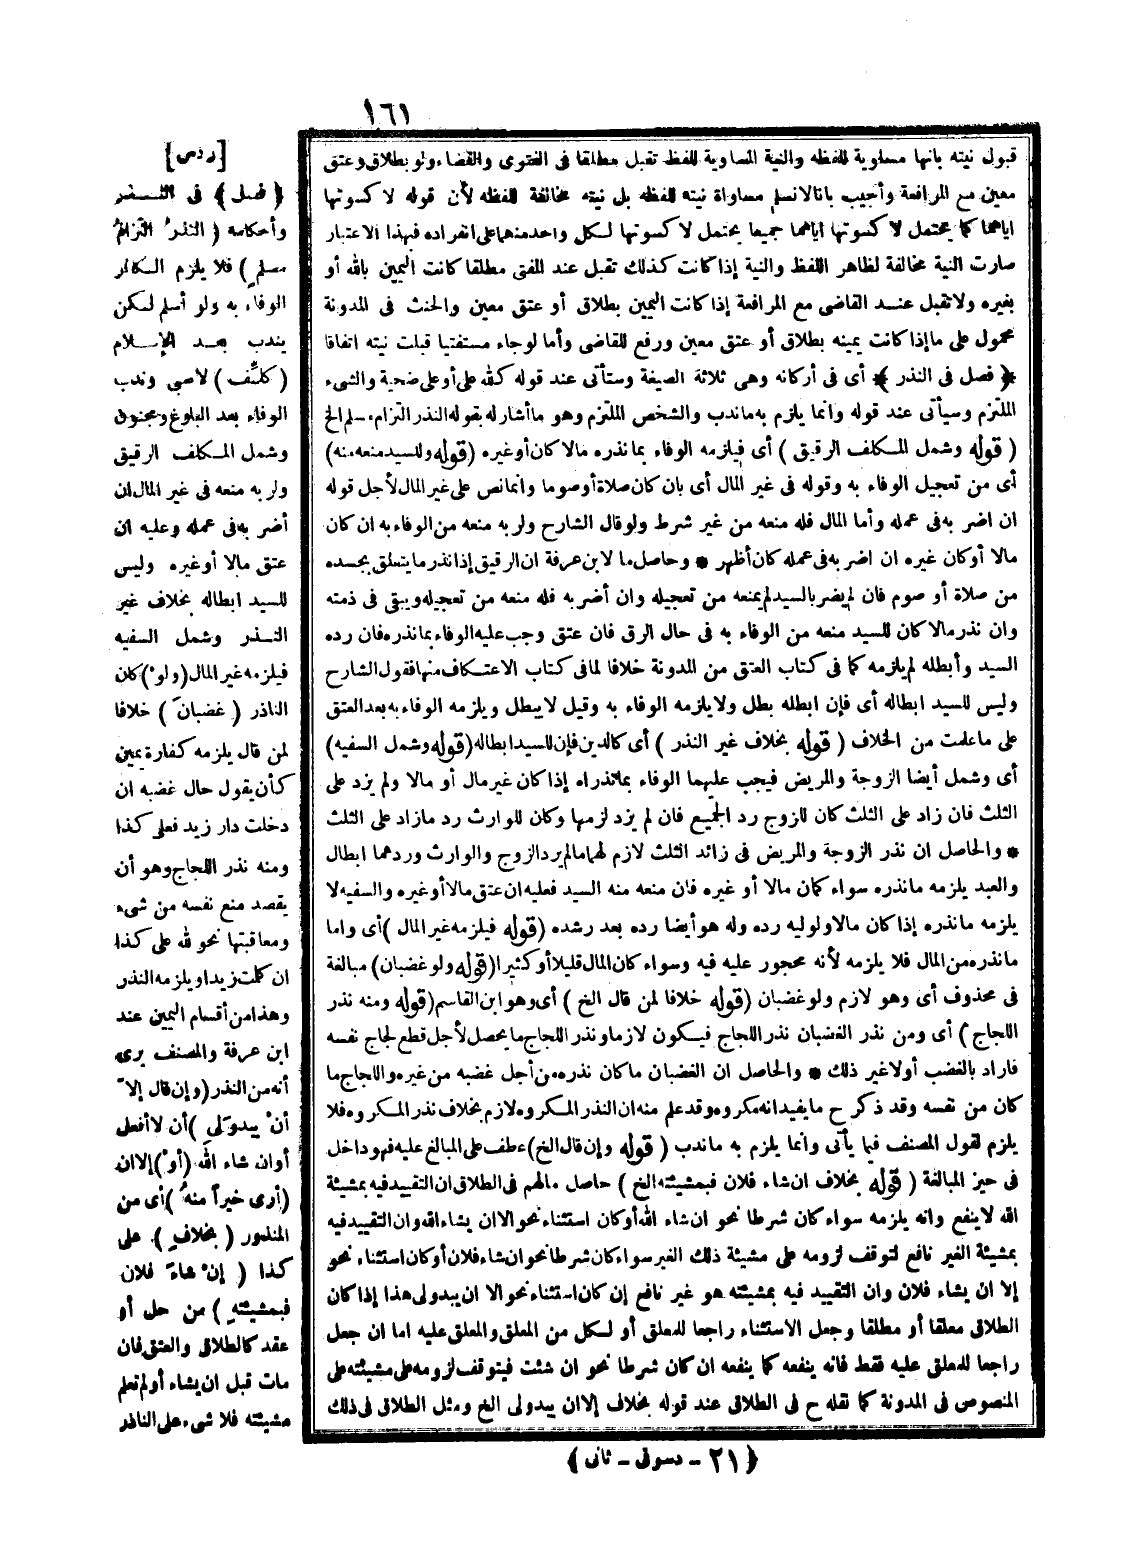 ١٦١
قبول نيته بانها مساوية للفظه والنية المساوية للفظ تقبل مطلقا فى الفتوى والقضاء ولو بطلاق وعتق
معين مع المرافعة وأجيب بانا لانسلم مساواة نيته للفظه بل نيته مخالفة للفظه لأن قوله لا كسوتها
اياهما كما يحتمل لا كسوتها اياهما جميعا يحتمل لا كسوتها لكل واحد منهما على انفراده فبهذا الاعتبار
صارت النية مخالفة لظاهر اللفظ والنية إذا كانت كذلك تقبل عند المفتى مطلقا كانت اليمين بالله أو
بغيره ولا تقبل عند القاضى مع المرافعة إذا كانت اليمين بطلاق أو عتق معين والحنث فى المدونة
محمول على ما إذا كانت يمينه بطلاق أو عتق معين ورفع للقاضى وأما لو جاء مستفتيا قبلت نيته اتفاقا
﴿ فصل فى النذر ﴾ أى فى أركانه وهى ثلاثة الصيغة وستأتى عند قوله كلله على أو على ضحية والشىء
الملتزم وسيأتى عند قوله وانما يلزم به ما ندب والشخص الملتزم وهو ما أشار له بقوله النذر التزام مسلم الخ
( قوله وشمل المكلف الرقيق ) أى فيلزمه الوفاء بما نذره مالا كان أو غيره (قوله وللسيد منعه منه)
أى من تعجيل الوفاء به وقوله فى غير المال أى بان كان صلاة أو صوما وانما نص على غير المال لأجل قوله
ان اضر به فى عمله وأما المال فله منعه من غير شرط ولو قال الشارح ولربه منعه من الوفاء به ان كان
مالا أو كان غيره ان اضر به فى عمله كان أظهر * وحاصل ما لابن عرفة ان الرقيق إذا نذر ما يتعلق بجسده
من صلاة أو صوم فان لم يضر بالسيد لم يمنعه من تعجيله وان أضر به فله منعه من تعجيله ويبقى فى ذمته
وان نذر مالا كان للسيد منعه من الوفاء به فى حال الرق فان عتق وجب عليه الوفاء بما نذره فان رده
السيد وأبطله لم يلزمه كما فى كتاب العتق من المدونة خلافا لما فى كتاب الاعتكاف منها فقول الشارح
وليس للسيد ابطاله أى فإن ابطله بطل ولا يلزمه الوفاء به وقيل لا يبطل ويلزمه الوفاء به بعد العتق
على ما علمت من الخلاف ( قوله بخلاف غير النذر ) أى كالدين فإن للسيد ابطاله (قوله وشمل السفيه)
أى وشمل أيضا الزوجة والمريض فيجب عليهما الوفاء بما نذراه إذا كان غير مال أو مالا ولم يزد على
الثلث فان زاد على الثلث كان للزوج رد الجميع فان لم يزد لزمها وكان للوارث رد ما زاد على الثلث
* والحاصل ان نذر الزوجة والمريض فى زائد الثلث لازم لهما ما لم يرد الزوج والوارث وردهما ابطال
والعبد يلزمه ما نذره سواء كان مالا أو غيره فان منعه منه السيد فعليه ان عتق مالا أو غيره والسفيه لا
يلزمه ما نذره إذا كان مالا ولوليه رده وله هو أيضا رده بعد رشده (قوله فيلزمه غير المال ) أى واما
ما نذره من المال فلا يلزمه لأنه محجور عليه فيه وسواء كان المال قليلا أو كثيرا (قوله ولو غضبان) مبالغة
فى محذوف أى وهو لازم ولو غضبان (قوله خلافا لمن قال الخ ) أى وهو ابن القاسم (قوله ومنه نذر
اللجاج ) أى ومن نذر الغضبان نذر اللجاج فيكون لازما ونذر اللجاج ما يحصل لأجل قطع لجاج نفسه
فاراد بالغضب أولا غير ذلك * والحاصل ان الغضبان ما كان نذره من أجل غضبه من غيره واللجاج ما
كان من نفسه وقد ذكر ح ما يفيد انه مكروه وقد علم منه ان النذر المكروه لازم بخلاف نذر المكروه فلا
يلزم لقول المصنف فيما يأتى وانما يلزم به ما ندب ( قوله وإن قال الخ) عطف على المبالغ عليه فهو داخل
فى حيز المبالغة ( قوله بخلاف ان شاء فلان فبمشيئته الخ ) حاصل ما لهم فى الطلاق ان التقييد فيه بمشيئة
الله لا ينفع وانه يلزمه سواء كان شرطا نحو ان شاء الله أو كان استثناء نحو الا ان يشاء الله وان التقييد فيه
بمشيئة الغير نافع لتوقف لزومه على مشيئة ذلك الغير سواء كان شرطا نحو ان شاء فلان أو كان استثناء نحو
إلا ان يشاء فلان وان التقييد فيه بمشيئته هو غير نافع إن كان استثناء نحو الا ان يبدو لى هذا إذا كان
الطلاق معلقا أو مطلقا وجعل الاستثناء راجعا للمعلق أو لكل من المعلق والمعلق عليه اما ان جعل
راجعا للمعلق عليه فقط فانه ينفعه كما ينفعه ان كان شرطا نحو ان شئت فيتوقف لزومه على مشيئته على
المنصوص فى المدونة كما نقله ح فى الطلاق عند قوله بخلاف إلا ان يبدو لى الخ ومثل الطلاق فى ذلك
[درس]
﴿ فصل ﴾ فى النذر
وأحكامه ( النذرُ التزامُ
مسلمٍ ) فلا يلزم الكافر
الوفاء به ولو أسلم لكن
يندب بعد الإسلام
(كلِّف ) لا صبى وندب
الوفاء بعد البلوغ ومجنون
وشمل المكلف الرقيق
ولربه منعه فى غير المال ان
أضر به فى عمله وعليه ان
عتق مالا أو غيره وليس
للسيد ابطاله بخلاف غير
النذر وشمل السفيه
فيلزمه غير المال (ولوْ) كان
الناذر ( غضبانَ ) خلافا
لمن قال يلزمه كفارة يمين
كأن يقول حال غضبه ان
دخلت دار زيد فعلى كذا
ومنه نذر اللجاج وهو أن
يقصد منع نفسه من شىء
ومعاقبتها نحو لله على كذا
ان كلمت زيدا ويلزمه النذر
وهذا من أقسام اليمين عند
ابن عرفة والمصنف يرى
أنه من النذر (وإن قال إلاَّ
أنْ يبدوَ لى ) أن لا أفعل
أو ان شاء الله (أوْ) إلا ان
(أرى خيراً منهُ ) أى من
المنذور ( بخلافِ ) على
كذا ( إنْ شاءَ فلان
فبمشيئتهِ ) من حل أو
عقد كالطلاق والعتق فان
مات قبل ان يشاء أو لم تعلم
مشيئته فلا شىء على الناذر
﴿ ٢١ - دسوقى - ثانى ﴾